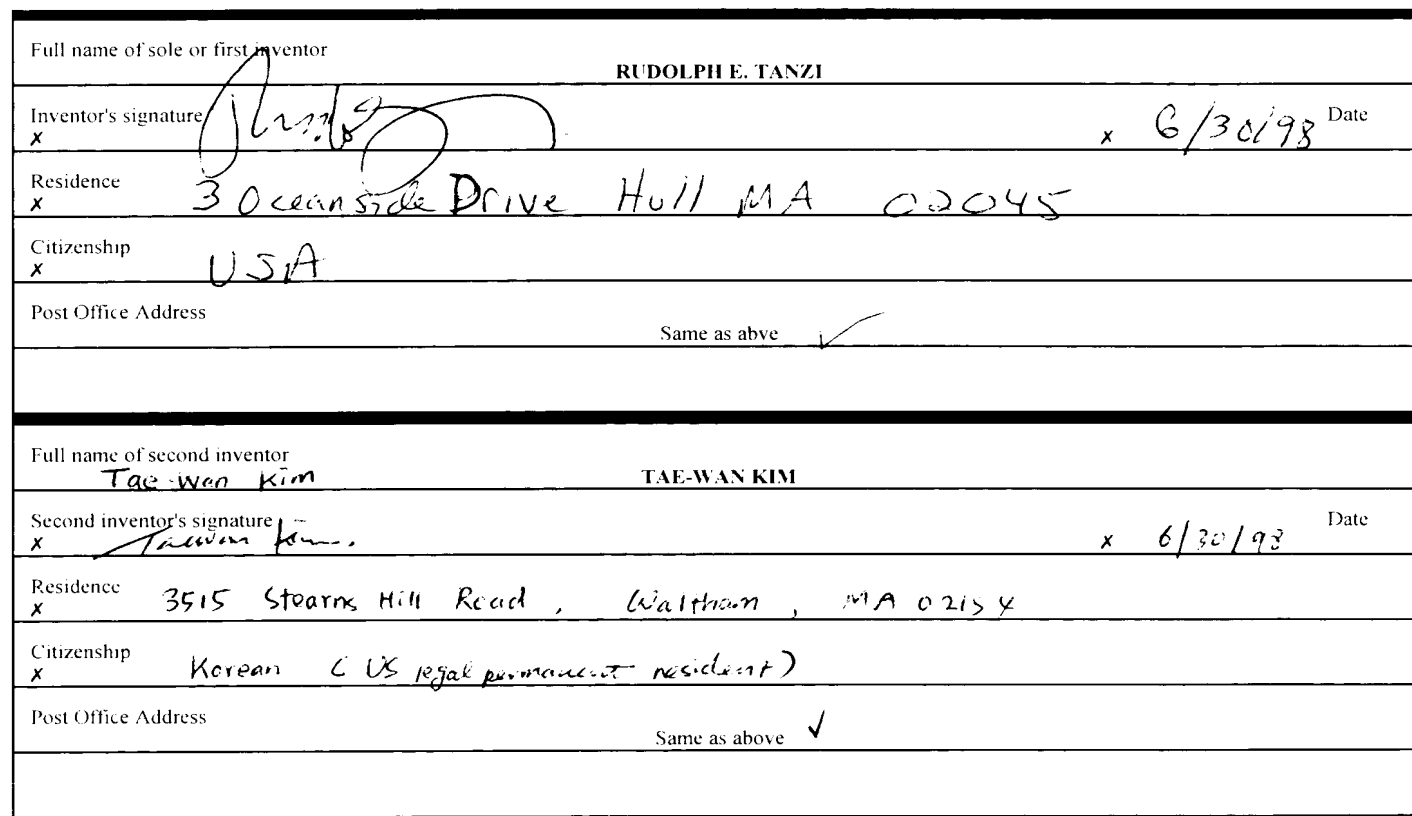 Full name of sole or first inventor
RUDOLPH E. TANZI
Inventor's signature
x x 6/30/98 Date
Residence
x 3 Oceanside Drive Hull MA 02045
Citizenship
x USA
Post Office Address
Same as abve ✓
Full name of second inventor
Tae-wan Kim TAE-WAN KIM
Second inventor's signature Date
x Taewan Kim. x 6/30/98
Residence
x 3515 Stearns Hill Road, Waltham, MA 02154
Citizenship
x Korean (US legal permanent resident)
Post Office Address
Same as above ✓